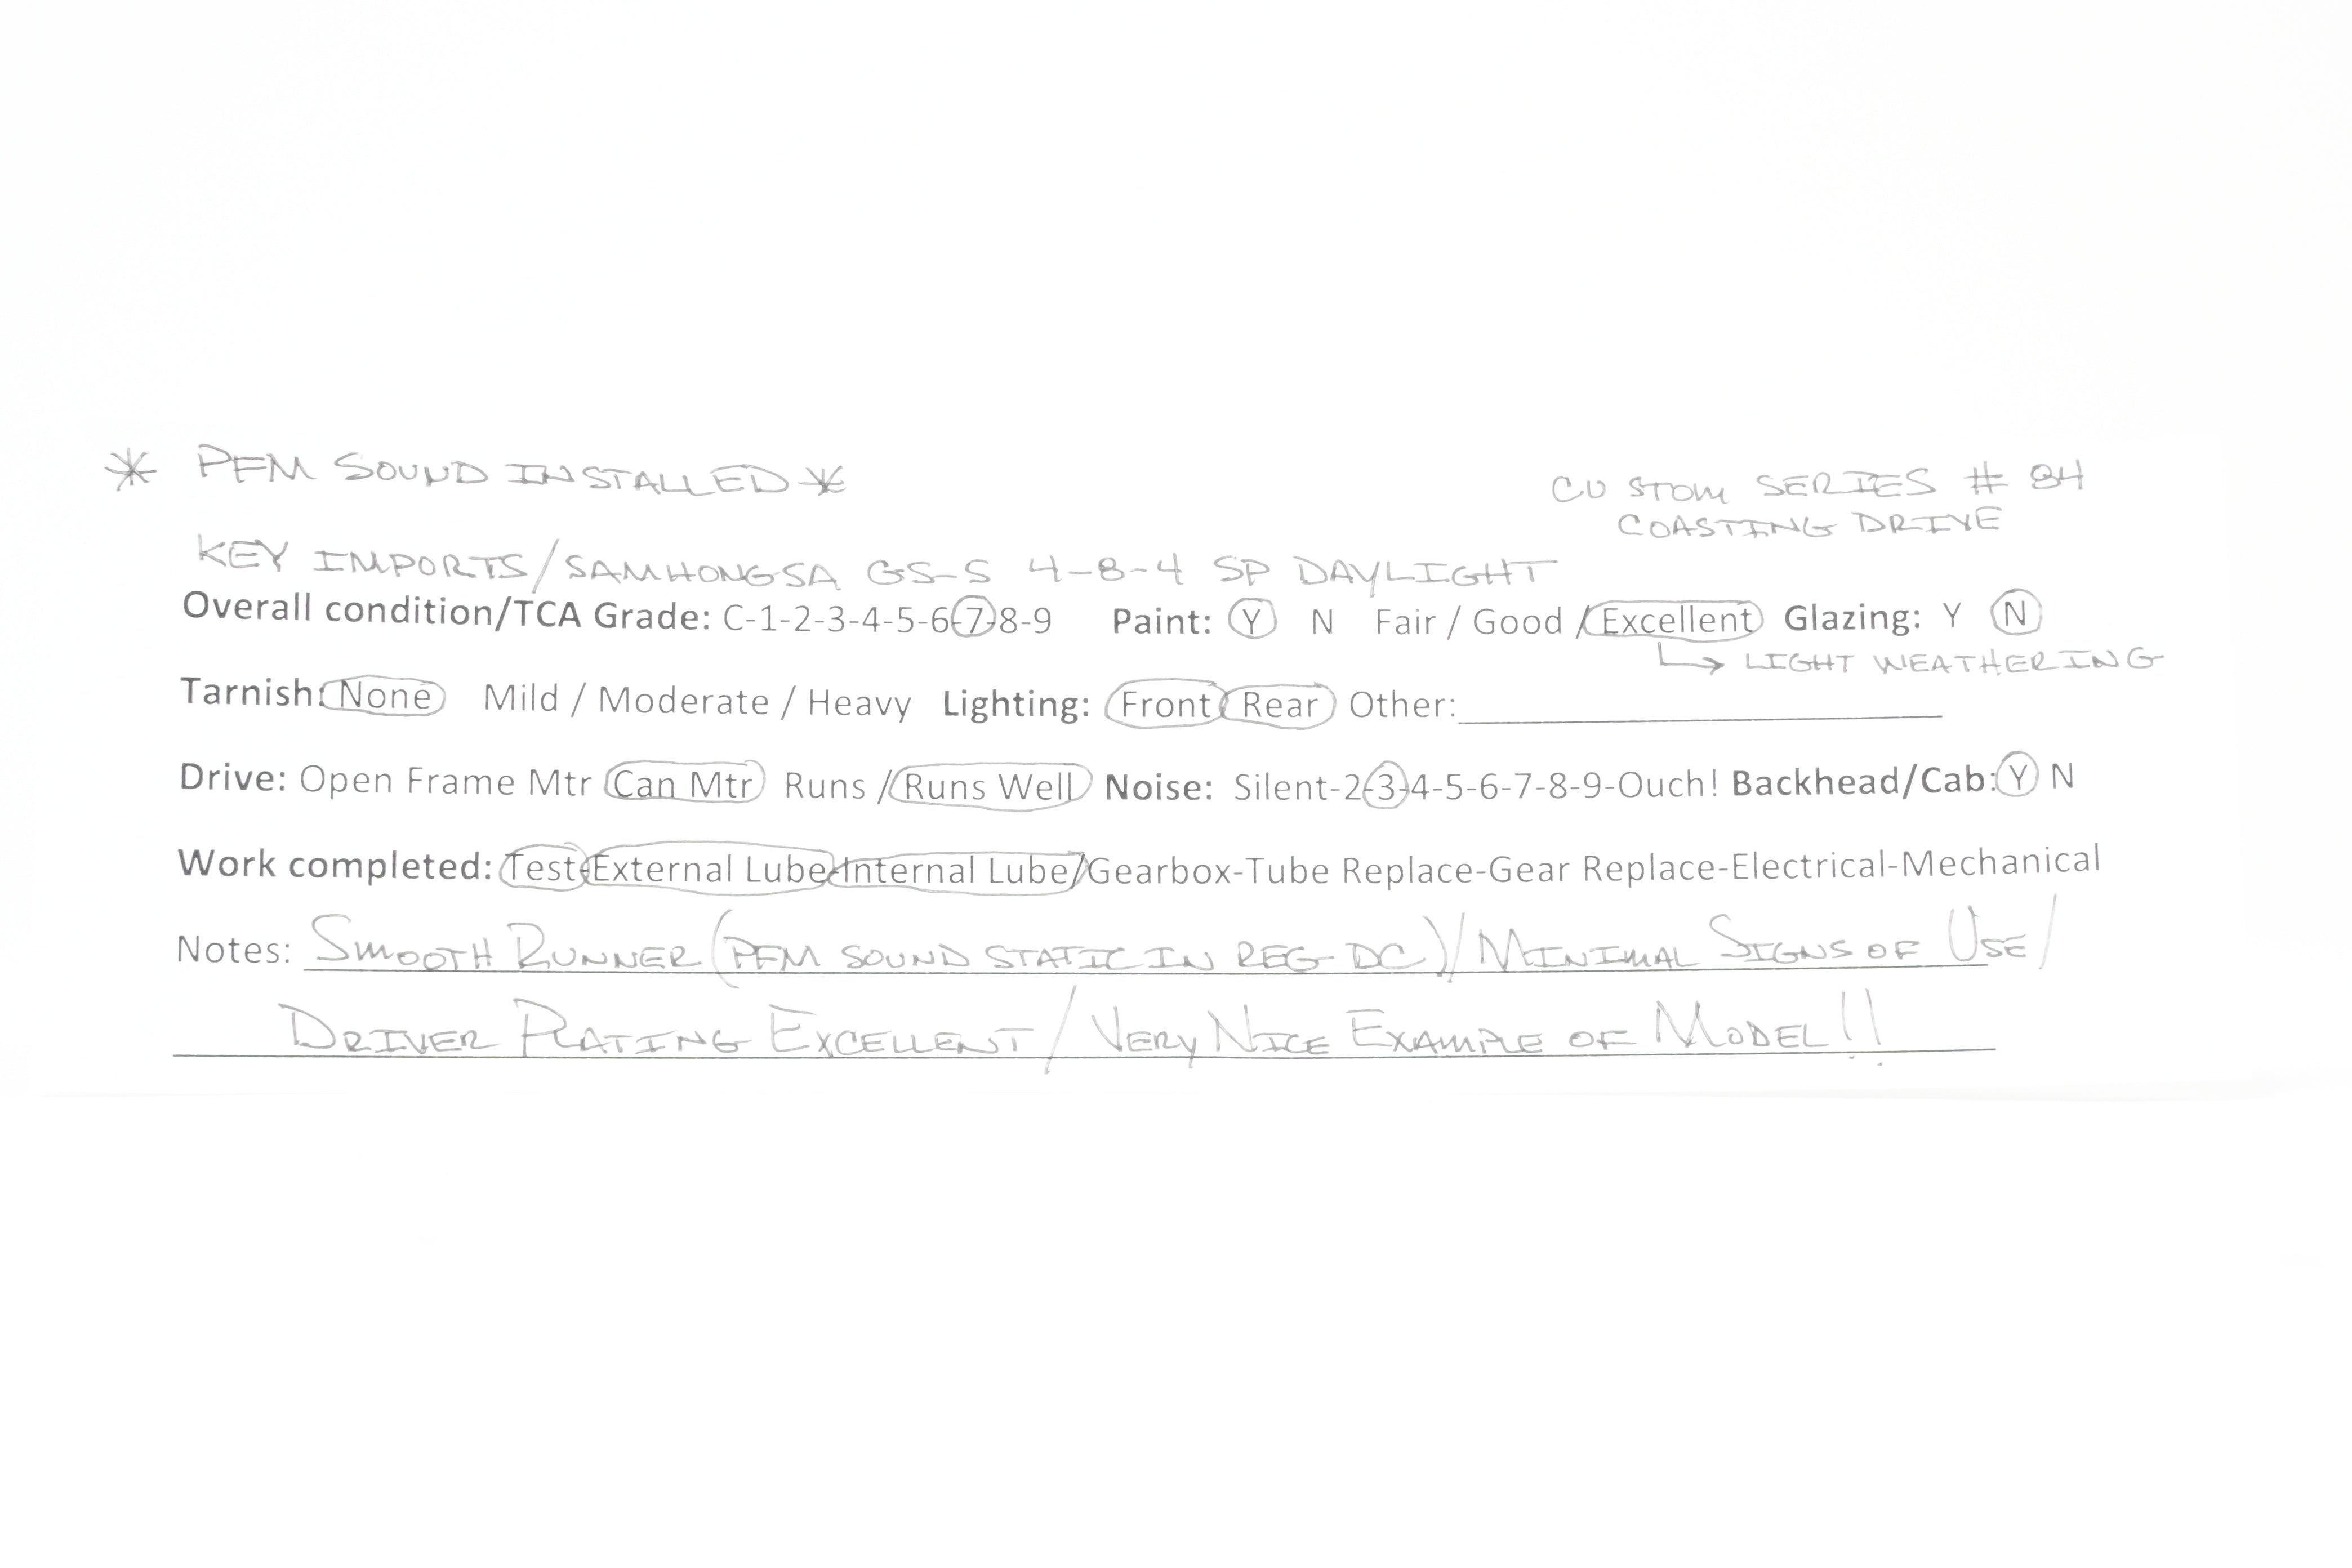 * PFM SOUND INSTALLED *
CUSTOM SERIES # 84
COASTING DRIVE
KEY IMPORTS/SAMHONGSA GS-5 4-8-4 SP DAYLIGHT
Overall condition/TCA Grade: C-1-2-3-4-5-6-7-8-9 Paint: Y N Fair / Good / Excellent Glazing: Y N
→ LIGHT WEATHERING
Tarnish: None Mild / Moderate / Heavy Lighting: Front / Rear Other:
Drive: Open Frame Mtr Can Mtr Runs / Runs Well Noise: Silent-2-3-4-5-6-7-8-9-Ouch! Backhead/Cab: Y N
Work completed: Test-External Lube-Internal Lube/Gearbox-Tube Replace-Gear Replace-Electrical-Mechanical
Notes: SMOOTH RUNNER (PFM SOUND STATIC IN REG DC)/MINIMAL SIGNS OF USE/
DRIVER PLATING EXCELLENT/VERY NICE EXAMPLE OF MODEL!!